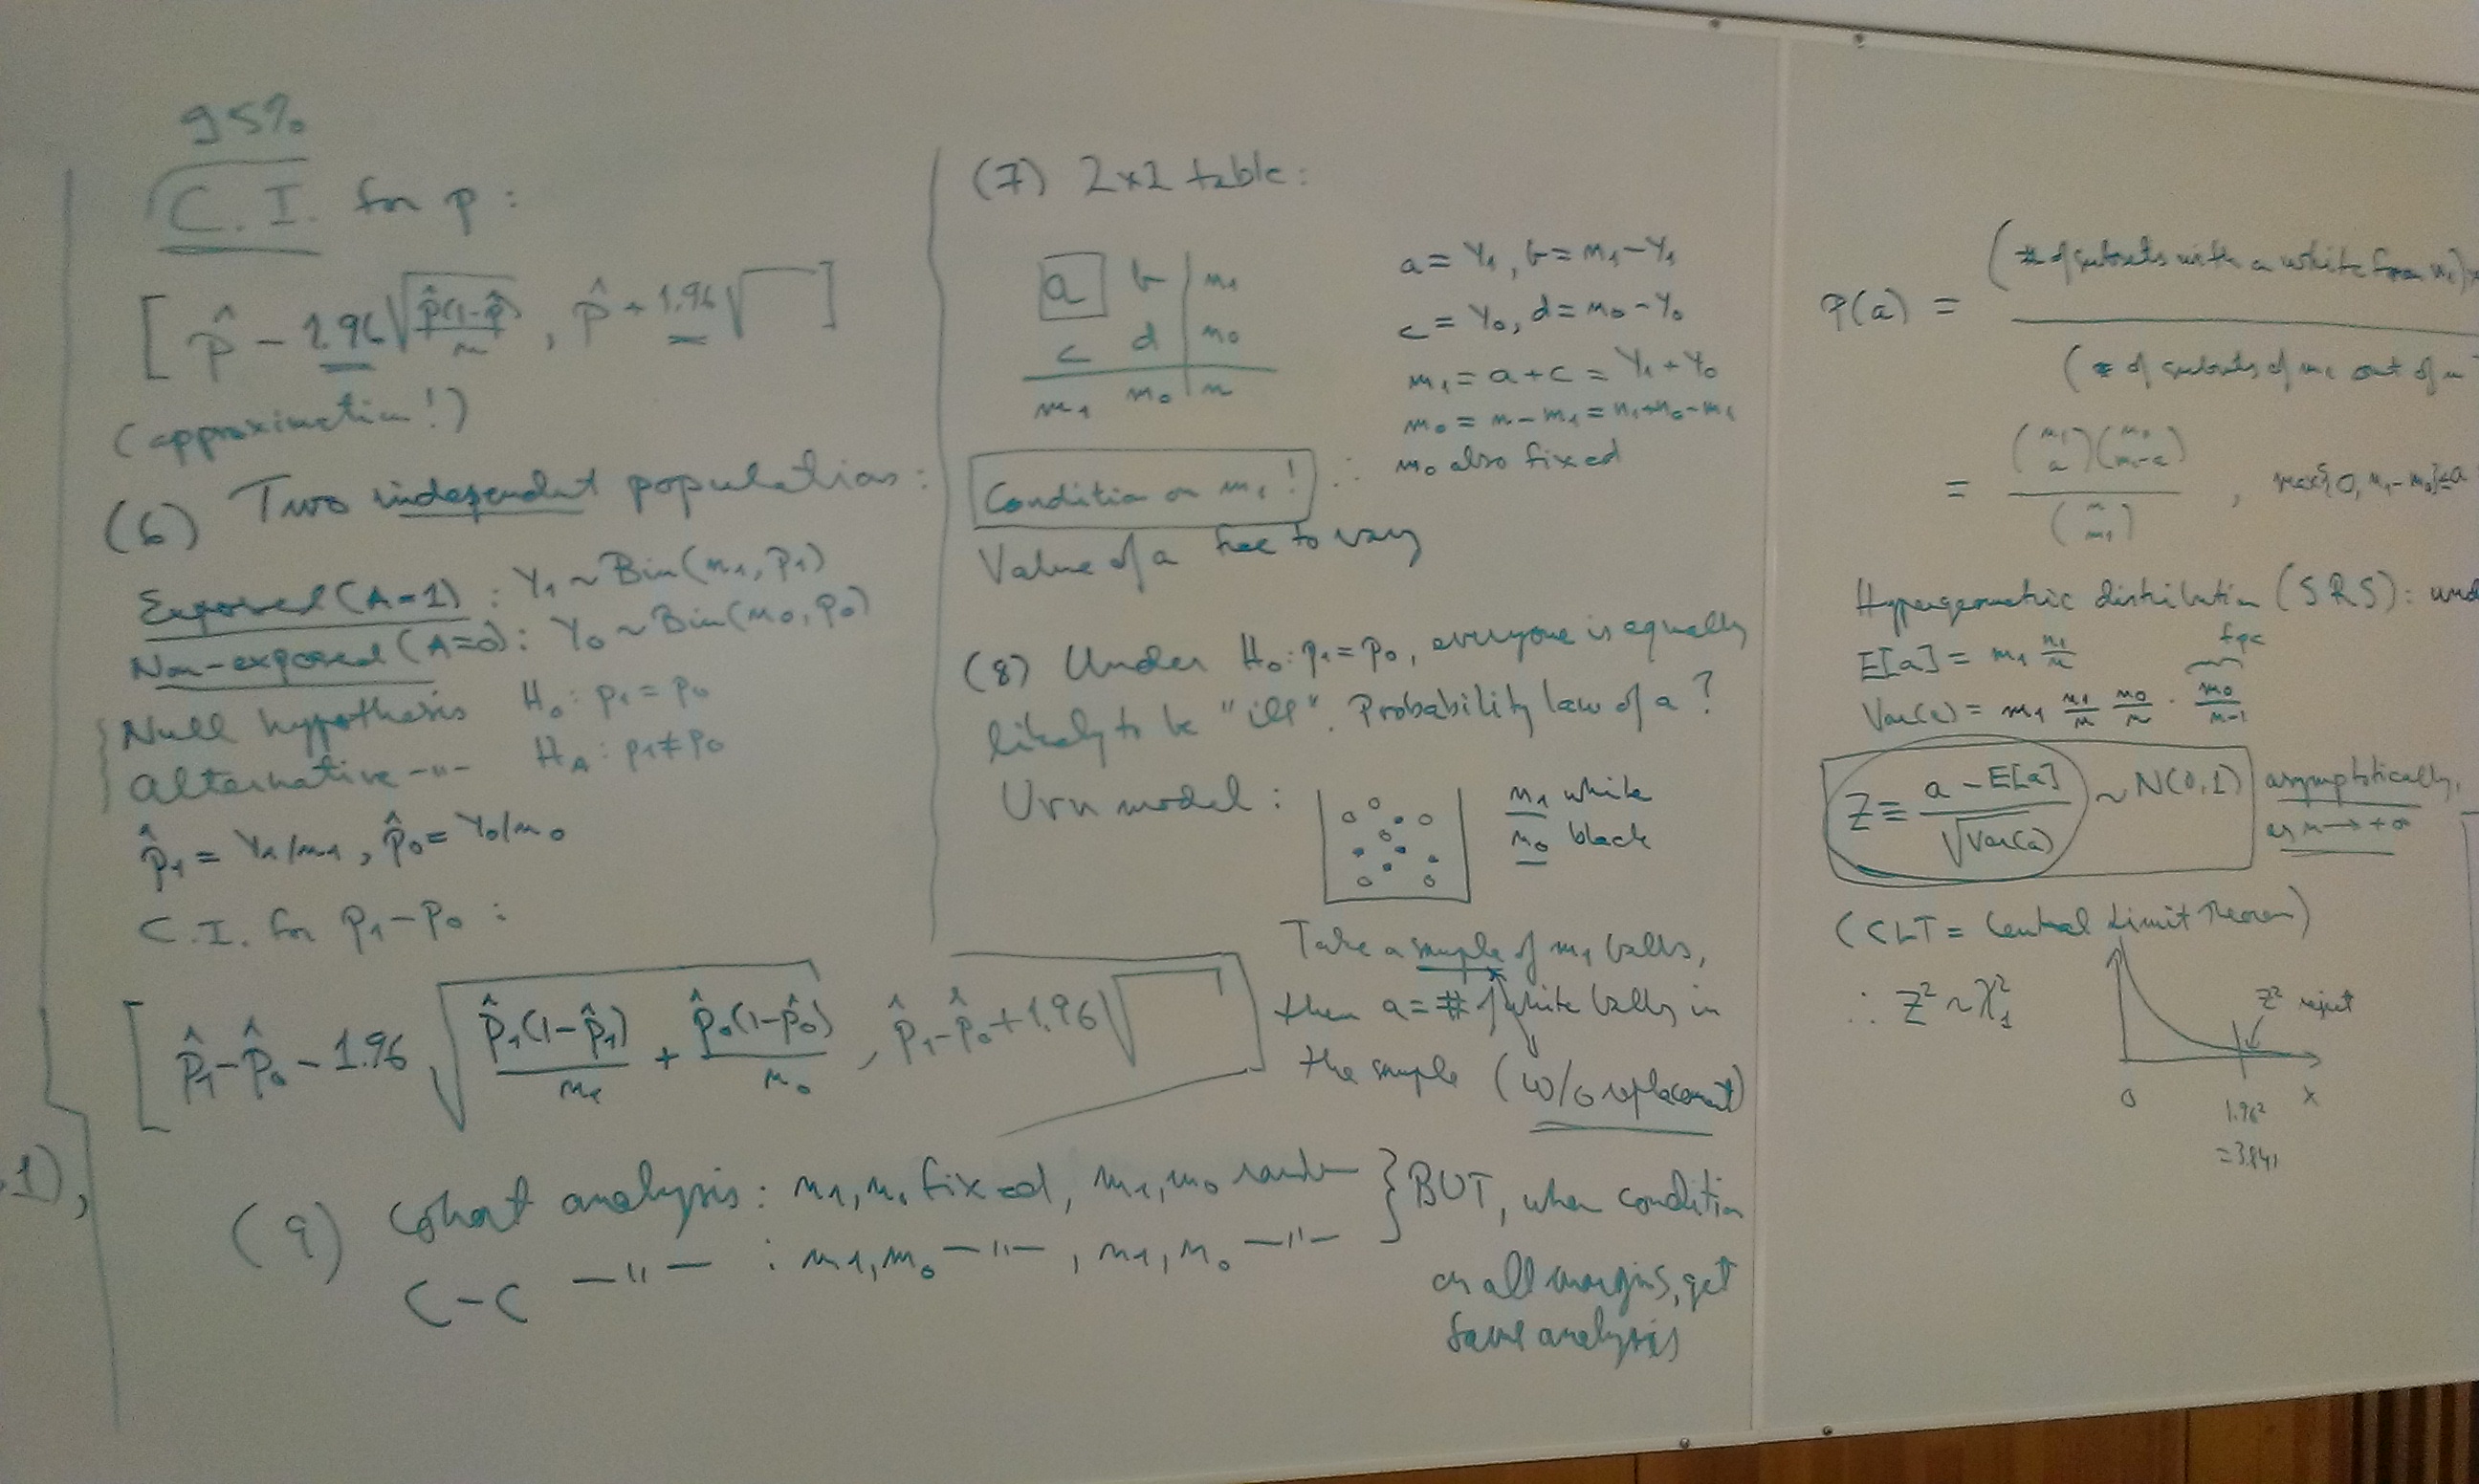 95%
C.I. for p :
[ p̂ - 1.96 √(p̂(1-p̂)/n) , p̂ + 1.96 √ ]
(approximation!)
(6) Two independent populations :
Exposed (A=1) : Y₁ ~ Bin(n₁, p₁)
Non-exposed (A=0) : Y₀ ~ Bin(n₀, p₀)
Null hypothesis H₀ : p₁ = p₀
Alternative -"- H_A : p₁ ≠ p₀
p̂₁ = Y₁/n₁ , p̂₀ = Y₀/n₀
C.I. for p₁-p₀ :
[ p̂₁-p̂₀ - 1.96 √(p̂₁(1-p̂₁)/n₁ + p̂₀(1-p̂₀)/n₀) , p̂₁-p̂₀ + 1.96 √ ]
1),
(7) 2x2 table :
a b | n₁
c d | n₀
m₁ m₀ | n
a = Y₁ , b = n₁-Y₁
c = Y₀, d = n₀-Y₀
m₁ = a+c = Y₁+Y₀
m₀ = n-m₁ = n₁+n₀-m₁
Condition on m₁ ! ∴ m₀ also fixed
Value of a free to vary
(8) Under H₀ : p₁=p₀, everyone is equally
likely to be "ill". Probability law of a ?
Urn model : n₁ white
n₀ black
Take a sample of m₁ balls,
then a = # of white balls in
the sample (w/o replacement)
(9) Cohort analysis : n₁, n₀ fixed, m₁, m₀ random } BUT, when condition
C-C -"- : m₁, m₀ -"- , n₁, n₀ -"-
on all margins, get
same analysis
P(a) = (# of subsets with a white from n₁) x
(# of subsets of m₁ out of n
= (n₁ a)(n₀ m₁-a) / (n m₁) , max{0, m₁-n₀} ≤ a
Hypergeometric distribution (SRS) : und
fpc
E[a] = m₁ n₁/n
Var(a) = m₁ n₁/n n₀/n · m₀/n-1
Z = a - E[a] / √Var(a) ~ N(0,1) asymptotically,
as n → +∞
(CLT = Central Limit Theorem)
∴ Z² ~ χ²₁
Z² reject
0 1.96² x
=3.841